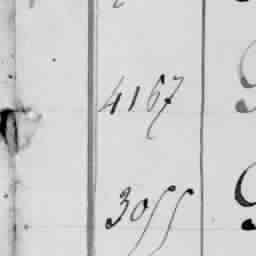 4167
3055